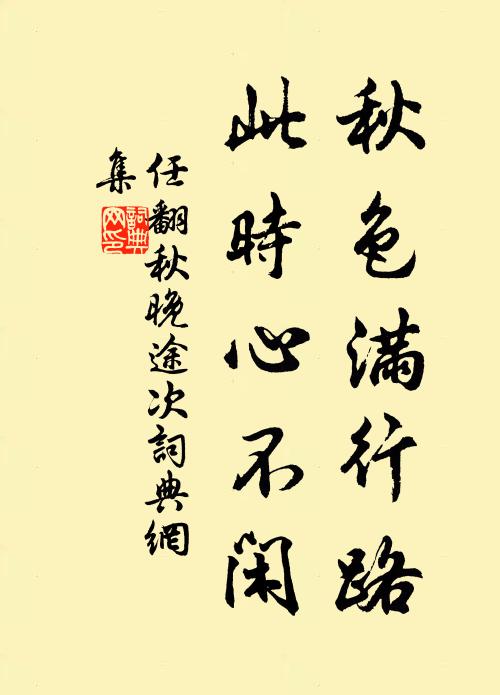 秋色满行路
此時心不闲
任翻秋晚途次詞典網
集
詞典
网印